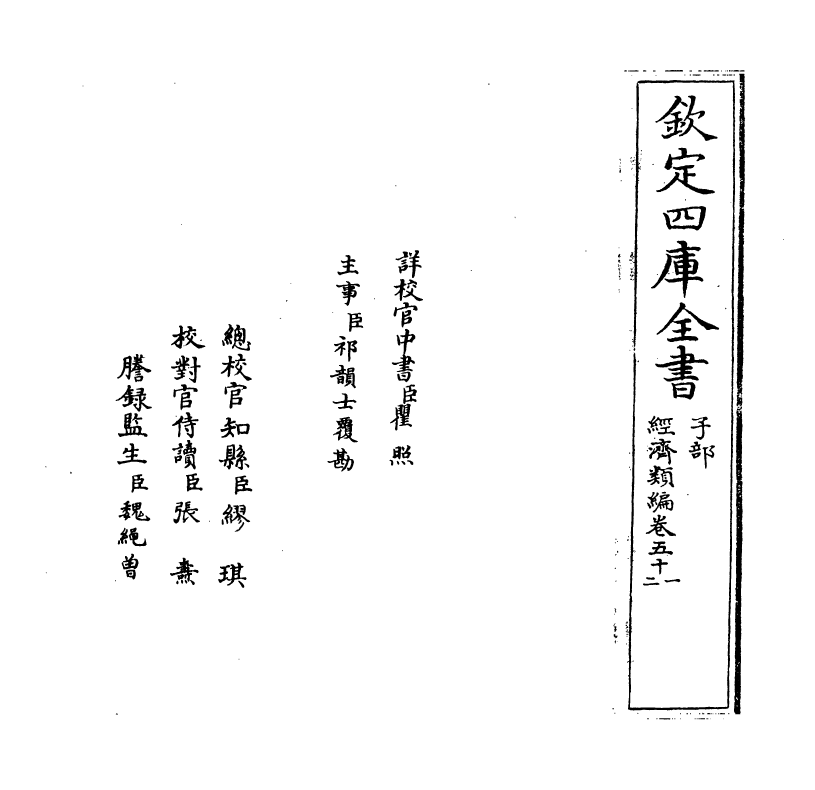 欽定四庫全書
子部
經濟類編卷五十一
二
詳校官中書臣瞿照
主事臣祁韻士覆勘
總校官知縣臣繆琪
校對官侍讀臣張燾
謄録監生臣魏繩曾